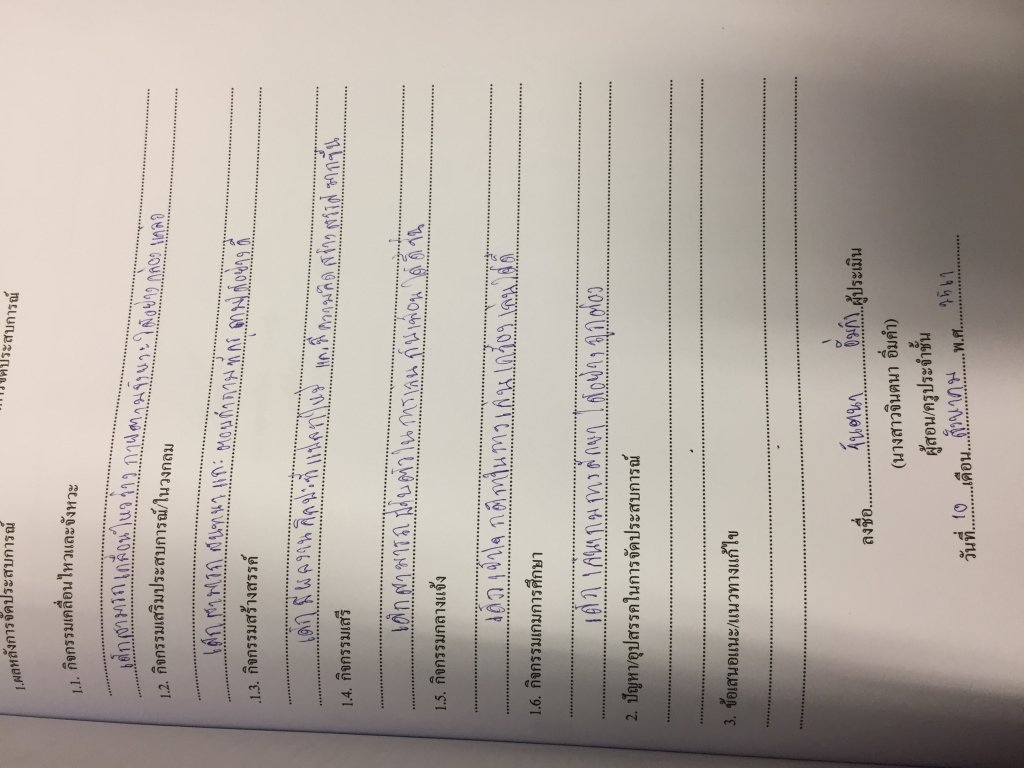 การจัดประสบการณ์
1.ผลหลังการจัดประสบการณ์
1.1. กิจกรรมเคลื่อนไหวและจังหวะ
เด็กสามารถเคลื่อนไหวร่างกายตามจังหวะได้อย่างคล่องแคล่ว
1.2. กิจกรรมเสริมประสบการณ์/ในวงกลม
เด็กสามารถสนทนาและตอบคำถามที่ครูถามได้อย่างดี
.1.3. กิจกรรมสร้างสรรค์
เด็กมีผลงานศิลปะที่แปลกใหม่ และมีความคิดสร้างสรรค์มากขึ้น
1.4. กิจกรรมเสรี
เด็กสามารถ ในการเล่นกับเพื่อนได้ดีขึ้น
1.5. กิจกรรมกลางแจ้ง
เด็กเข้าใจกติกาในการเล่นเครื่องเล่นได้ดี
1.6. กิจกรรมเกมการศึกษา
เด็กเล่นเกมการศึกษาได้อย่างถูกต้อง
2. ปัญหา/อุปสรรคในการจัดประสบการณ์
3. ข้อเสนอแนะ/แนวทางแก้ไข
ลงชื่อ จินตนา อิ่มคำ ผู้ประเมิน
(นางสาวจินตนา อิ่มคำ)
ผู้สอน/ครูประจำชั้น
วันที่ 10 เดือน สิงหาคม พ.ศ.